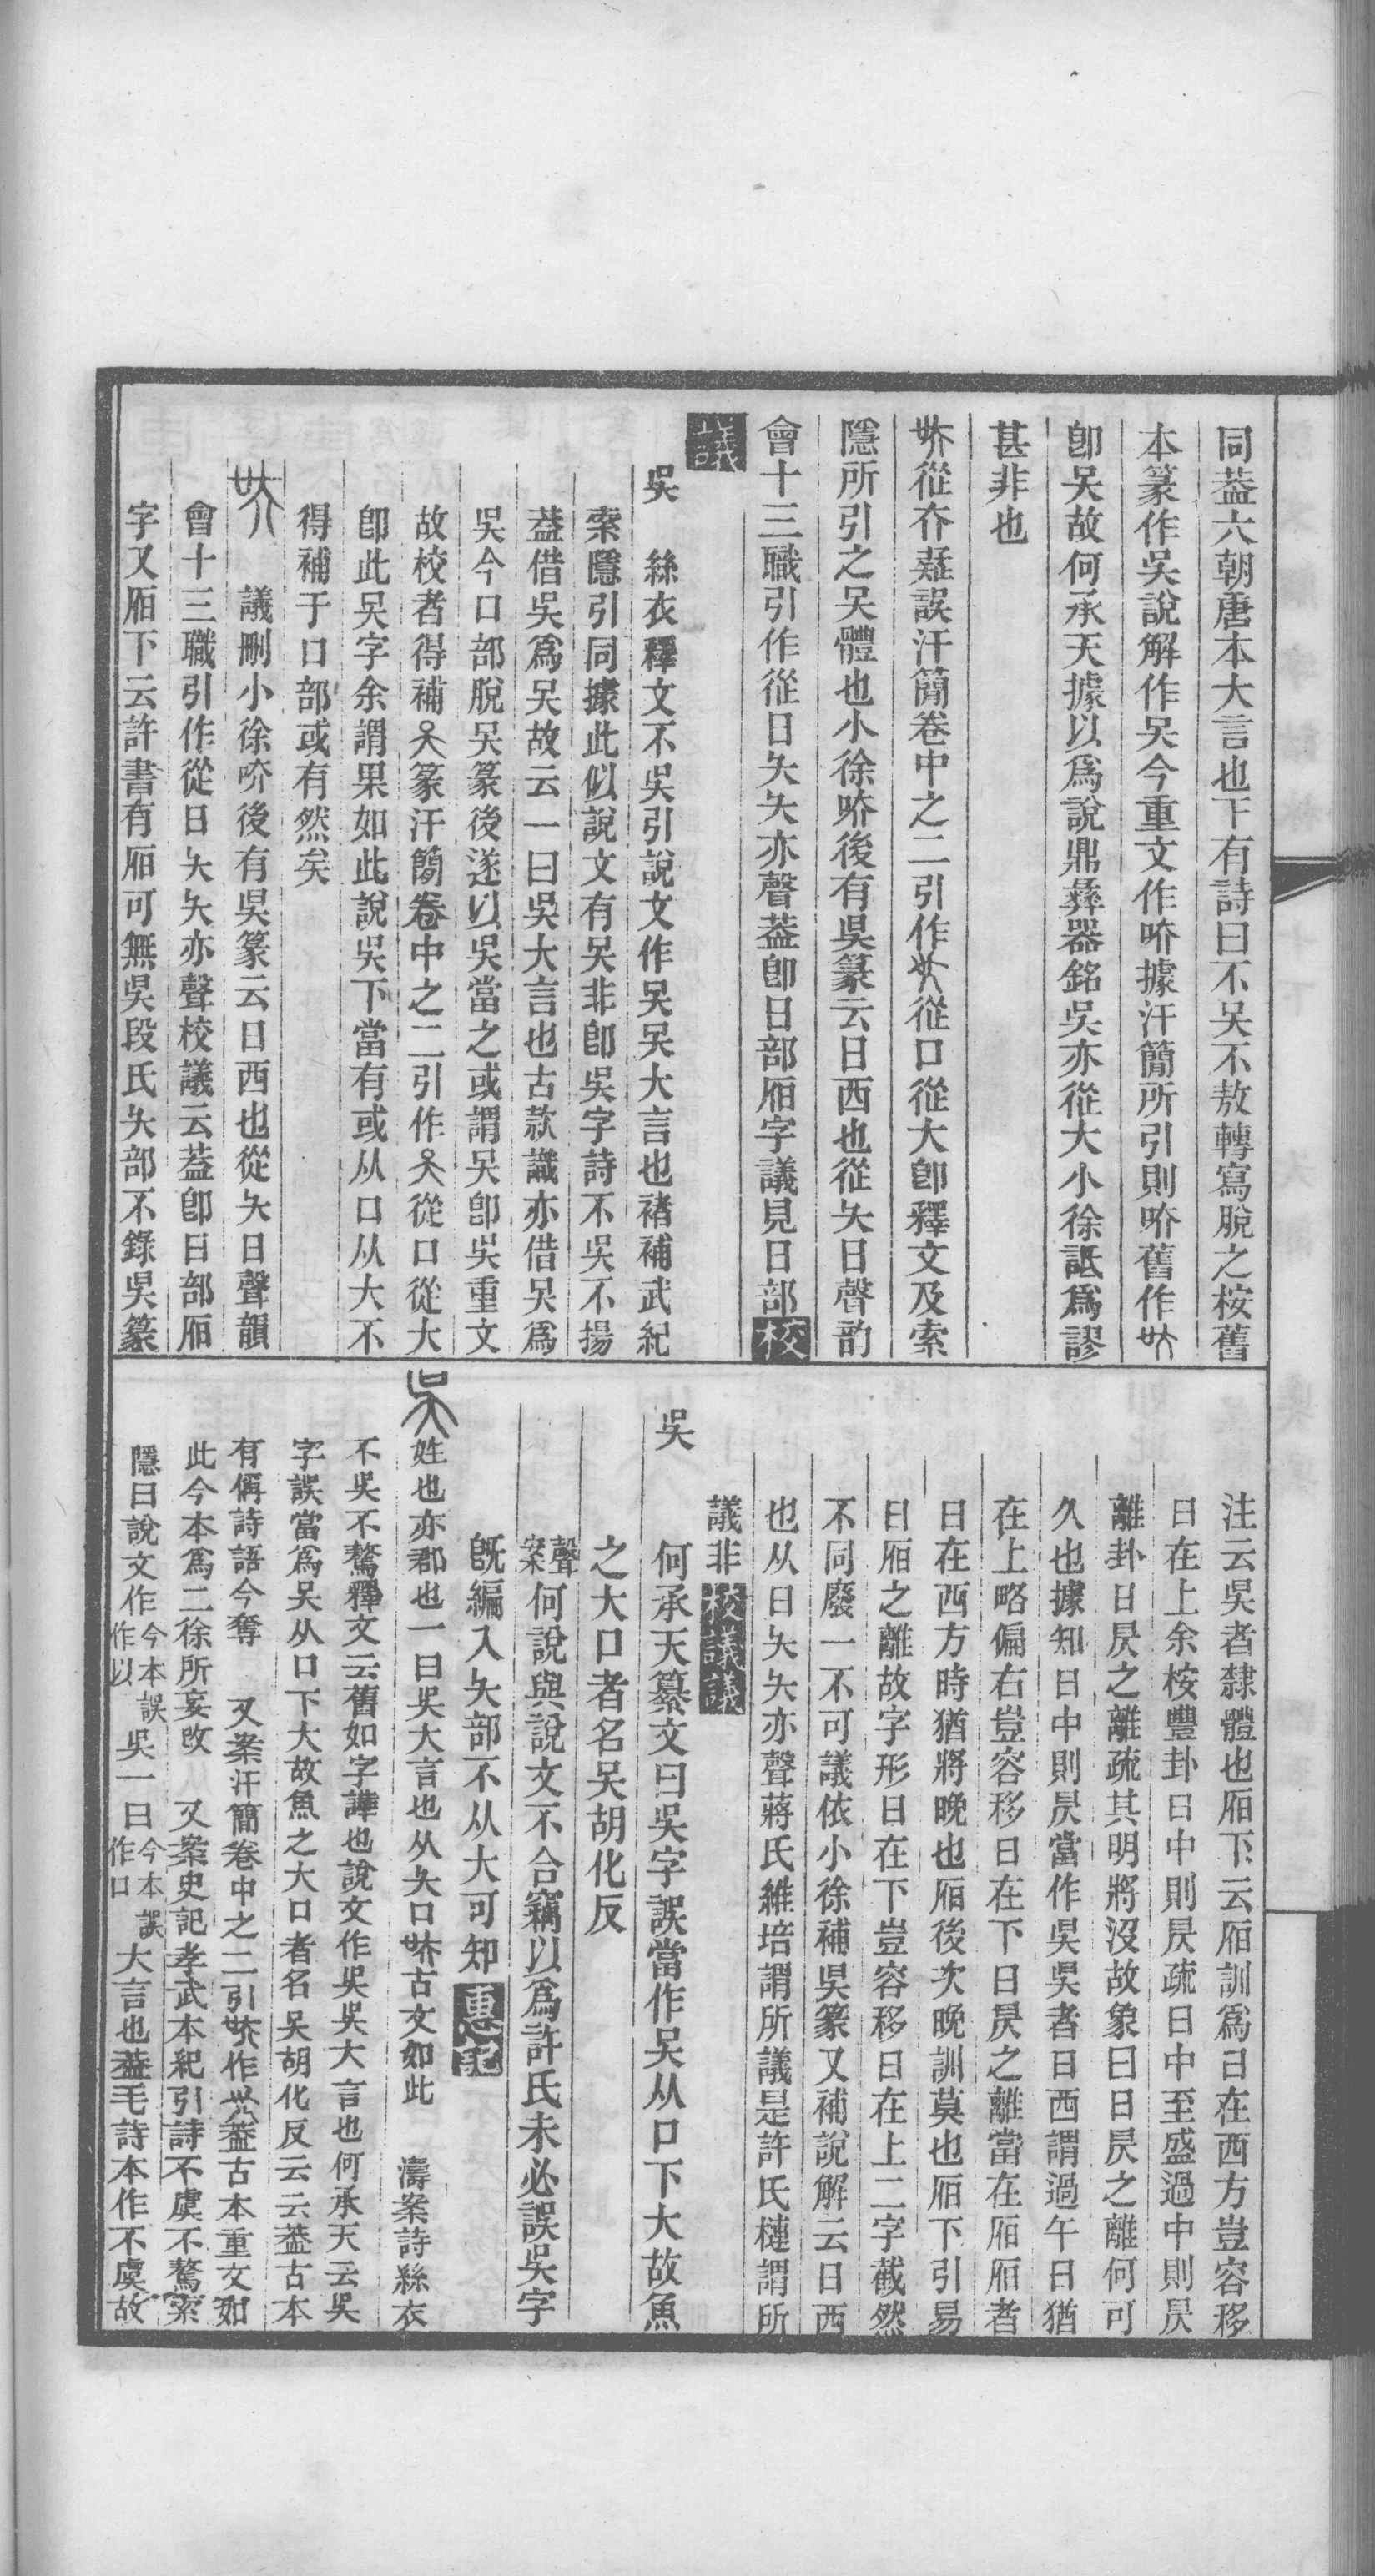 同葢六朝唐本大言也下有詩曰不吳不敖轉寫脫之桉舊
本篆作吳說解作吳今重文作㕦據汗簡所引則㕦舊作
卽吳故何承天據以爲說鼎彝器銘吳亦從大小徐詆爲謬
甚非也
從夰疑誤汗簡卷中之二引作從口從大卽釋文及索
隱所引之吴體也小徐㕦後有吳篆云日西也從夨日聲韵
會十三職引作從日夨夨亦聲葢卽日部厢字議見日部校
議
吳　絲衣釋文不吳引說文作吴吴大言也褚補武紀
索隱引同據此似說文有吴非卽吳字詩不吳不揚
葢借吳爲吴故云一曰吳大言也古款識亦借吴爲
吳今口部脫吴篆後遂以吳當之或謂吴卽吳重文
故校者得補篆汗簡卷中之二引作從口從大
卽此吴字余謂果如此說吳下當有或从口从大不
得補于口部或有然矣
議刪小徐㕦後有吳篆云日西也從夨日聲韻
會十三職引作從日夨夨亦聲校議云葢卽日部厢
字又厢下云許書有厢可無吳段氏夨部不錄吳篆
注云吳者隸體也厢下云厢訓爲日在西方豈容移
日在上余桉豐卦日中則昃疏日中至盛過中則昃
離卦日昃之離疏其明將沒故象曰日昃之離何可
久也據知日中則昃當作吳吳者日西謂過午日猶
在上略偏右豈容移日在下日昃之離當在厢厢者
日在西方時猶將晚也厢後次晚訓莫也厢下引易
日厢之離故字形日在下豈容移日在上二字截然
不同廢一不可議依小徐補吳篆又補說解云日西
也从日夨夨亦聲蔣氏維培謂所議是許氏槤謂所
議非校議議
吳　何承天纂文曰吳字誤當作吴从口下大故魚
之大口者名吴胡化反
聲案何說與說文不合竊以爲許氏未必誤吳字
旣編入夨部不从大可知惠記
姓也亦郡也一曰吳大言也从夨口古文如此　濤案詩絲衣
不吳不驁釋文云舊如字譁也說文作吳吳大言也何承天云吳
字誤當爲吴从口下大故魚之大口者名吴胡化反云云葢古本
有偁詩語今奪　又案汗簡卷中之二引作葢古本重文如
此今本爲二徐所妄改　又案史記孝武本紀引詩不虞不驁索
隱曰說文作今本誤作以吳一曰今本誤作口大言也葢毛詩本作不虞故